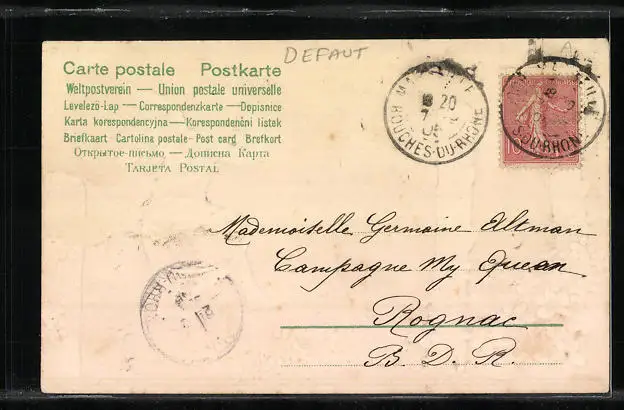 DEFAUT
Carte postale Postkarte
Weltpostverein — Union postale universelle
Levelező-Lap — Correspondenzkarte — Dopisnice
Karta korespondencyjna — Korespondenční listek
Briefkaart Cartolina postale - Post card Brefkort
Открытое-письмо — Дописна Карта
TARJETA POSTAL
20
7
BOUCHES-DU-RHÔNE
10
Mademoiselle Germaine Altman
Campagne My Queen
Rognac
B. D. R.